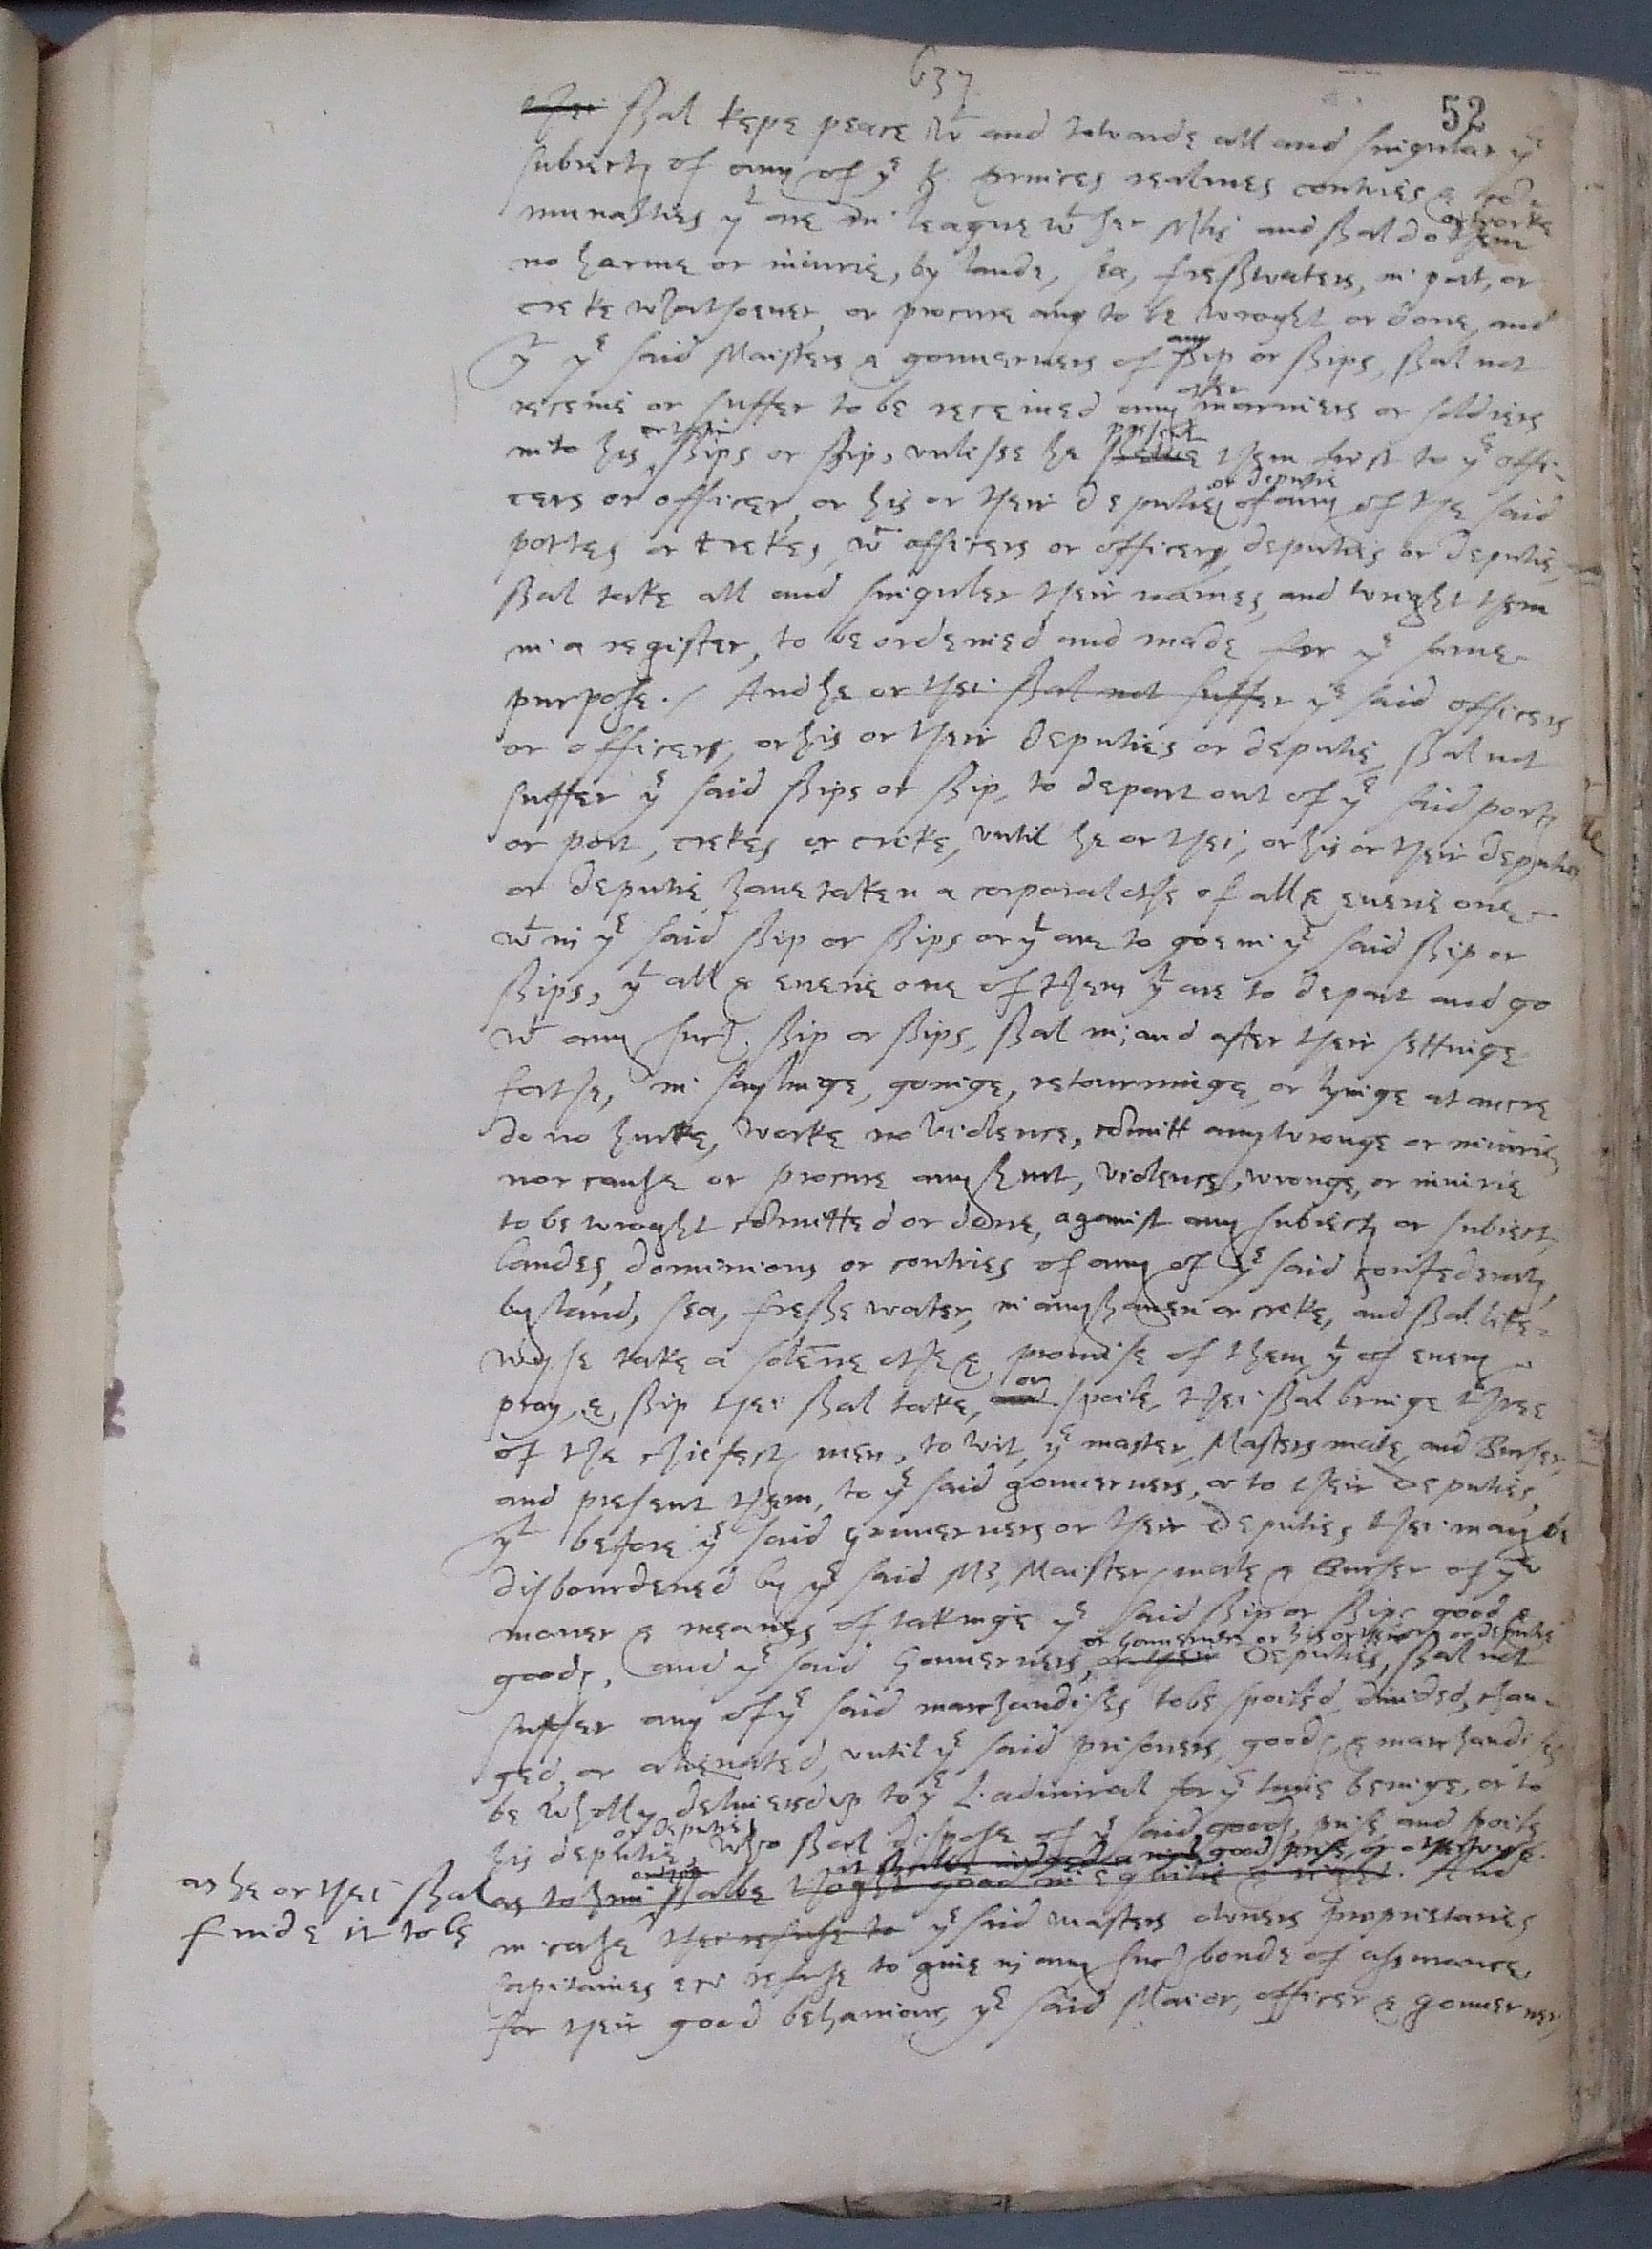 637
52
thei shal kepe peace wt and towarde all and singular ye
subiects of any of ye k. princes realmes contries & com
munalties yt are in league wt her Mtis and shal do or worke them
no harme or iniurie, by lande, sea, freshwaters, in port, or
creke whatsoeuer, or procure any to be wroght or done, and
yt ye said Maisters & gouuerners of any ship or ships, shal not
receiue or suffer to be receiued any other marriners or soldiers
into his or their ships or ship, vnlesse he shewe present them first to ye offi-
cers or officer, or his or their deputies or deputie of any of the said
portes or crekes, wch officers or officer, deputies or deputie,
shal take all and singuler their names, and wright them
in a register, to be ordeined and made for ye same
purpose. / And he or thei shal not suffer ye said officers
or officer, or his or their deputies or deputie, shal not
suffer ye said ships or ship, to depart out of ye said ports
or port, crekes or creke, vntil he or thei, or his or their deputies
or deputie haue taken a corporal othe of all & euerie one
wt in ye said ship or ships or yt are to goe in ye said ship or
ships, yt all & euerie one of them yt are to depart and go
wt any such ship or ships, shal in, and after their settinge
forthe, in saylinge, goinge, retourninge, or lyinge at ancre
do no hurte, worke no violence, comitt any wronge or iniurie,
nor cause or procure any hurt, violence, wronge, or iniurie
to be wroght comitted or done, against any subiects or subiect,
landes, dominions or contries of any of ye said confederats,
by land, sea, freshe water, in any hauen or creke, and shal like-
wyse take a solene othe & promise of them yt of euery
pray, & ship thei shal take, and or spoile, thei shal bringe three
of the chiefest men, to wit, ye master, Masters mate, and Burser,
and present them, to ye said gouuerners, or to their deputies,
yt before ye said gouuerners or their deputies thei may be
disbourdened by ye said Mr, Maisters mate & Burser of ye
maner & meanes of takinge ye said ship or ships good &
goods, and ye said Gouuerners, or gouuerner or his or their or their deputies, or deputie shal not
suffer any of ye said marchandises to be spoiled, diuided, chan-
ged, or alienated, vntil ye said prisoners, goods, & marchandises
be wholly deliuered vp to ye L. admiral for ye time beinge, or to
his deputie, or deputies who shal dispose of ye said goods, prise and spoile
as he or thei shal
finde it to be
as to him shalbe thoght good in equitie & right. And
in case thei refuse to ye said masters owners proprietaries
Capitaines etc refuse to giue in any such bonde of assurance,
for their good behauiour, ye said Maior, officer & gouuerner,